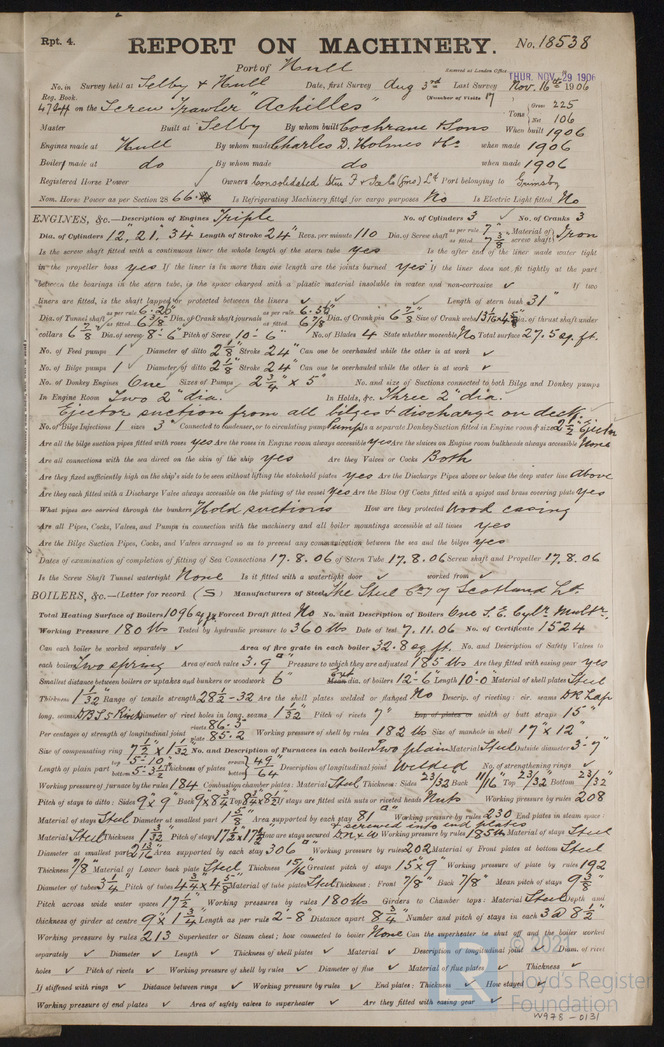 Rpt. 4.
REPORT ON MACHINERY. No. 18538
Port of Hull
Received at London Office THUR. NOV. 29 1906
No. in Survey held at Selby & Hull Date, first Survey Aug 3rd Last Survey Nov. 16th 1906
Reg. Book. (Number of Visits 17
on the Screw Trawler "Achilles" Tons { Gross 225 Net 106
Master Built at Selby By whom built Cochrane & Sons When built 1906
Engines made at Hull By whom made Charles D. Holmes & Co when made 1906
Boilers made at do By whom made do when made 1906
Registered Horse Power Owners Consolidated Stm F & Ice Co (Gms) Ld Port belonging to Grimsby
Nom. Horse Power as per Section 28 66. Is Refrigerating Machinery fitted for cargo purposes No Is Electric Light fitted No
ENGINES, &c.—Description of Engines Triple No. of Cylinders 3 No. of Cranks 3
Dia. of Cylinders 12", 21", 34" Length of Stroke 24" Revs. per minute 110 Dia. of Screw shaft as per rule 7" as fitted 7 3/8" Material of screw shaft Iron
Is the screw shaft fitted with a continuous liner the whole length of the stern tube yes Is the after end of the liner made water tight
in the propeller boss yes If the liner is in more than one length are the joints burned yes If the liner does not fit tightly at the part
between the bearings in the stern tube, is the space charged with a plastic material insoluble in water and non-corrosive ✓ If two
liners are fitted, is the shaft lapped or protected between the liners ✓ Length of stern bush 31"
Dia. of Tunnel shaft as per rule as fitted 6 7/8" Dia. of Crank shaft journals as per rule as fitted 6 7/8" Dia. of Crank pin 6 7/8" Size of Crank webs Dia. of thrust shaft under
collars 6 7/8" Dia. of screw 8'-6" Pitch of Screw 10'-6" No. of Blades 4 State whether moveable No Total surface 27.5 sq. ft.
No. of Feed pumps 1 Diameter of ditto 2 1/8" Stroke 24" Can one be overhauled while the other is at work ✓
No. of Bilge pumps 1 Diameter of ditto 2 1/8" Stroke 24" Can one be overhauled while the other is at work ✓
No. of Donkey Engines One Sizes of Pumps 2 3/4" x 5" No. and size of Suctions connected to both Bilge and Donkey pumps
In Engine Room Two 2" dia. In Holds, &c. Three 2" dia.
Ejector suction from all bilges & discharge on deck
No. of Bilge Injections 1 sizes 3" Connected to condenser, or to circulating pump Pump Is a separate Donkey Suction fitted in Engine room & size 2 1/2" Ejector
Are all the bilge suction pipes fitted with roses yes Are the roses in Engine room always accessible yes Are the sluices on Engine room bulkheads always accessible None
Are all connections with the sea direct on the skin of the ship yes Are they Valves or Cocks Both
Are they fixed sufficiently high on the ship's side to be seen without lifting the stokehold plates yes Are the Discharge Pipes above or below the deep water line above
Are they each fitted with a Discharge Valve always accessible on the plating of the vessel yes Are the Blow Off Cocks fitted with a spigot and brass covering plate yes
What pipes are carried through the bunkers Hold suctions How are they protected Wood casing
Are all Pipes, Cocks, Valves, and Pumps in connection with the machinery and all boiler mountings accessible at all times yes
Are the Bilge Suction Pipes, Cocks, and Valves arranged so as to prevent any communication between the sea and the bilges yes
Dates of examination of completion of fitting of Sea Connections 17.8.06 of Stern Tube 17.8.06 Screw shaft and Propeller 17.8.06
Is the Screw Shaft Tunnel watertight None Is it fitted with a watertight door ✓ worked from ✓
BOILERS, &c.—(Letter for record (S) Manufacturers of Steel The Steel Coy of Scotland Ld.
Total Heating Surface of Boilers 1096 sq ft Forced Draft fitted No No. and Description of Boilers One S.E. Cylr Multr.
Working Pressure 180 lbs Tested by hydraulic pressure to 360 lbs Date of test 7.11.06 No. of Certificate 1524
Can each boiler be worked separately ✓ Area of fire grate in each boiler 32.8 sq. ft. No. and Description of Safety Valves to
each boiler Two spring Area of each valve 3.9" Pressure to which they are adjusted 185 lbs Are they fitted with easing gear yes
Smallest distance between boilers or uptakes and bunkers or woodwork 6" dia. of boilers 12'-6" Length 10'-0" Material of shell plates Steel
Thickness 1 1/32" Range of tensile strength 28 1/2-32 Are the shell plates welded or flanged No Descrip. of riveting: cir. seams D.R. Lap
long. seams Diameter of rivet holes in long. seams 1 1/32" Pitch of rivets 7" Lap of plates or width of butt straps 15"
Per centages of strength of longitudinal joint rivets 86.3 plate 85.2 Working pressure of shell by rules 182 lbs Size of manhole in shell 17" x 12"
Size of compensating ring 7 1/2" x 1 1/32" No. and Description of Furnaces in each boiler Two plain Material Steel Outside diameter 3'-7"
Length of plain part top 5'-10" bottom Thickness of plates crown bottom 49/64" Description of longitudinal joint Welded No. of strengthening rings ✓
Working pressure of furnace by the rules 184 Combustion chamber plates: Material Steel Thickness: Sides 23/32" Back 11/16" Top 23/32" Bottom 23/32"
Pitch of stays to ditto: Sides 9" x 9" Back 9" x 8 3/4" Top If stays are fitted with nuts or riveted heads Nuts Working pressure by rules 208
Material of stays Steel Diameter at smallest part Area supported by each stay 81" Working pressure by rules 230 End plates in steam space:
Material Steel Thickness 1 1/32" Pitch of stays How are stays secured Working pressure by rules 185 lbs Material of stays Steel
Diameter at smallest part 2 13/16" Area supported by each stay 306" Working pressure by rules 202 Material of Front plates at bottom Steel
Thickness 7/8" Material of Lower back plate Steel Thickness 15/16" Greatest pitch of stays 15" x 9" Working pressure of plate by rules 192
Diameter of tubes 3 1/4" Pitch of tubes Material of tube plates Steel Thickness: Front 7/8" Back 7/8" Mean pitch of stays 9 3/8"
Pitch across wide water spaces 17 1/2" Working pressures by rules 180 lbs Girders to Chamber tops: Material Steel Depth and
thickness of girder at centre 9" x 1 3/4" Length as per rule 2'-8" Distance apart 8 3/4" Number and pitch of stays in each 3 @ 8 1/2"
Working pressure by rules 213 Superheater or Steam chest; how connected to boiler None Can the superheater be shut off and the boiler worked
separately ✓ Diameter ✓ Length ✓ Thickness of shell plates ✓ Material ✓ Description of longitudinal joint ✓ Diam. of rivet
holes ✓ Pitch of rivets ✓ Working pressure of shell by rules ✓ Diameter of flue ✓ Material of flue plates ✓ Thickness ✓
If stiffened with rings ✓ Distance between rings ✓ Working pressure by rules ✓ End plates: Thickness ✓ How stayed ✓
Working pressure of end plates ✓ Area of safety valves to superheater ✓ Are they fitted with easing gear ✓
© 2021
Lloyd's Register
Foundation
W978-0131